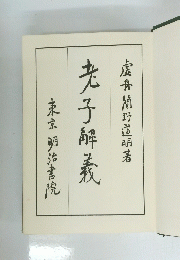 虚舟簡野道明著
老子解義
東京明治書院